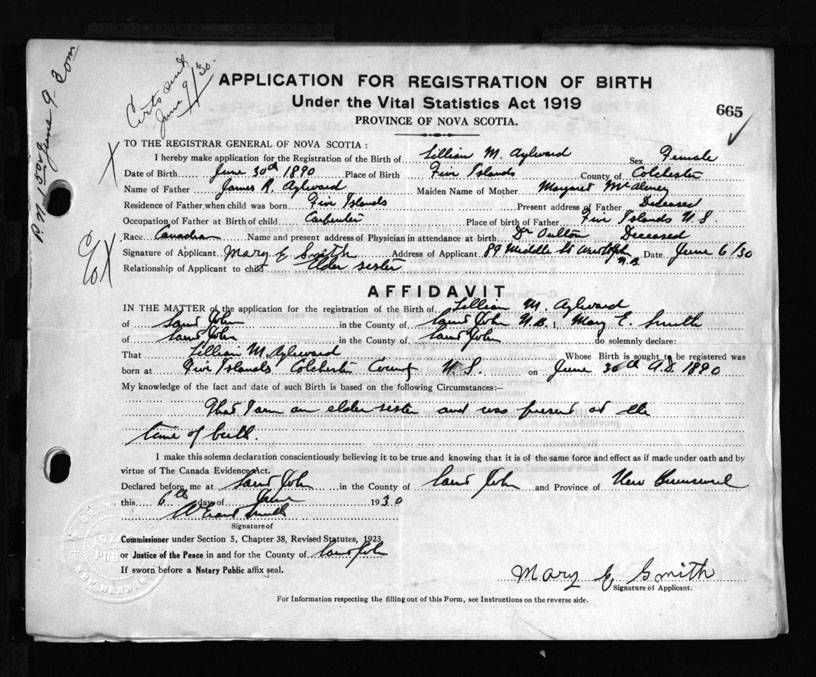 Certs and
June 9/30.
June 9. Com
APPLICATION FOR REGISTRATION OF BIRTH
Under the Vital Statistics Act 1919
PROVINCE OF NOVA SCOTIA.
665
TO THE REGISTRAR GENERAL OF NOVA SCOTIA :
I hereby make application for the Registration of the Birth of Lillian M. Aylward Sex Female
Date of Birth June 30th 1890 Place of Birth Five Islands County of Colchester
Name of Father James R. Aylward Maiden Name of Mother Margaret McAlmey
Residence of Father when child was born Five Islands Present address of Father Deceased
Occupation of Father at Birth of child Carpenter Place of birth of Father Five Islands N.S.
Race Canadian Name and present address of Physician in attendance at birth Dr Deceased
Signature of Applicant Mary E. Smith Address of Applicant 89 Middle St N.B. Date June 6/30
Relationship of Applicant to child Elder sister
AFFIDAVIT
IN THE MATTER of the application for the registration of the Birth of Lillian M. Aylward
of Saint John in the County of Saint John N.B. I, Mary E. Smith
of Saint John in the County of Saint John do solemnly declare:
That Lillian M. Aylward Whose Birth is sought to be registered was
born at Five Islands Colchester County N.S. on June 30th A.D. 1890
My knowledge of the fact and date of such Birth is based on the following Circumstances:—
That I am an elder sister and was present at the
time of birth.
I make this solemn declaration conscientiously believing it to be true and knowing that it is of the same force and effect as if made under oath and by
virtue of The Canada Evidence Act.
Declared before me at Saint John in the County of Saint John and Province of New Brunswick
this 6th day of June 1930
Signature of
Commissioner under Section 5, Chapter 38, Revised Statutes, 1923
or Justice of the Peace in and for the County of Saint John
If sworn before a Notary Public affix seal.
Mary E Smith
Signature of Applicant.
For Information respecting the filling out of this Form, see Instructions on the reverse side.